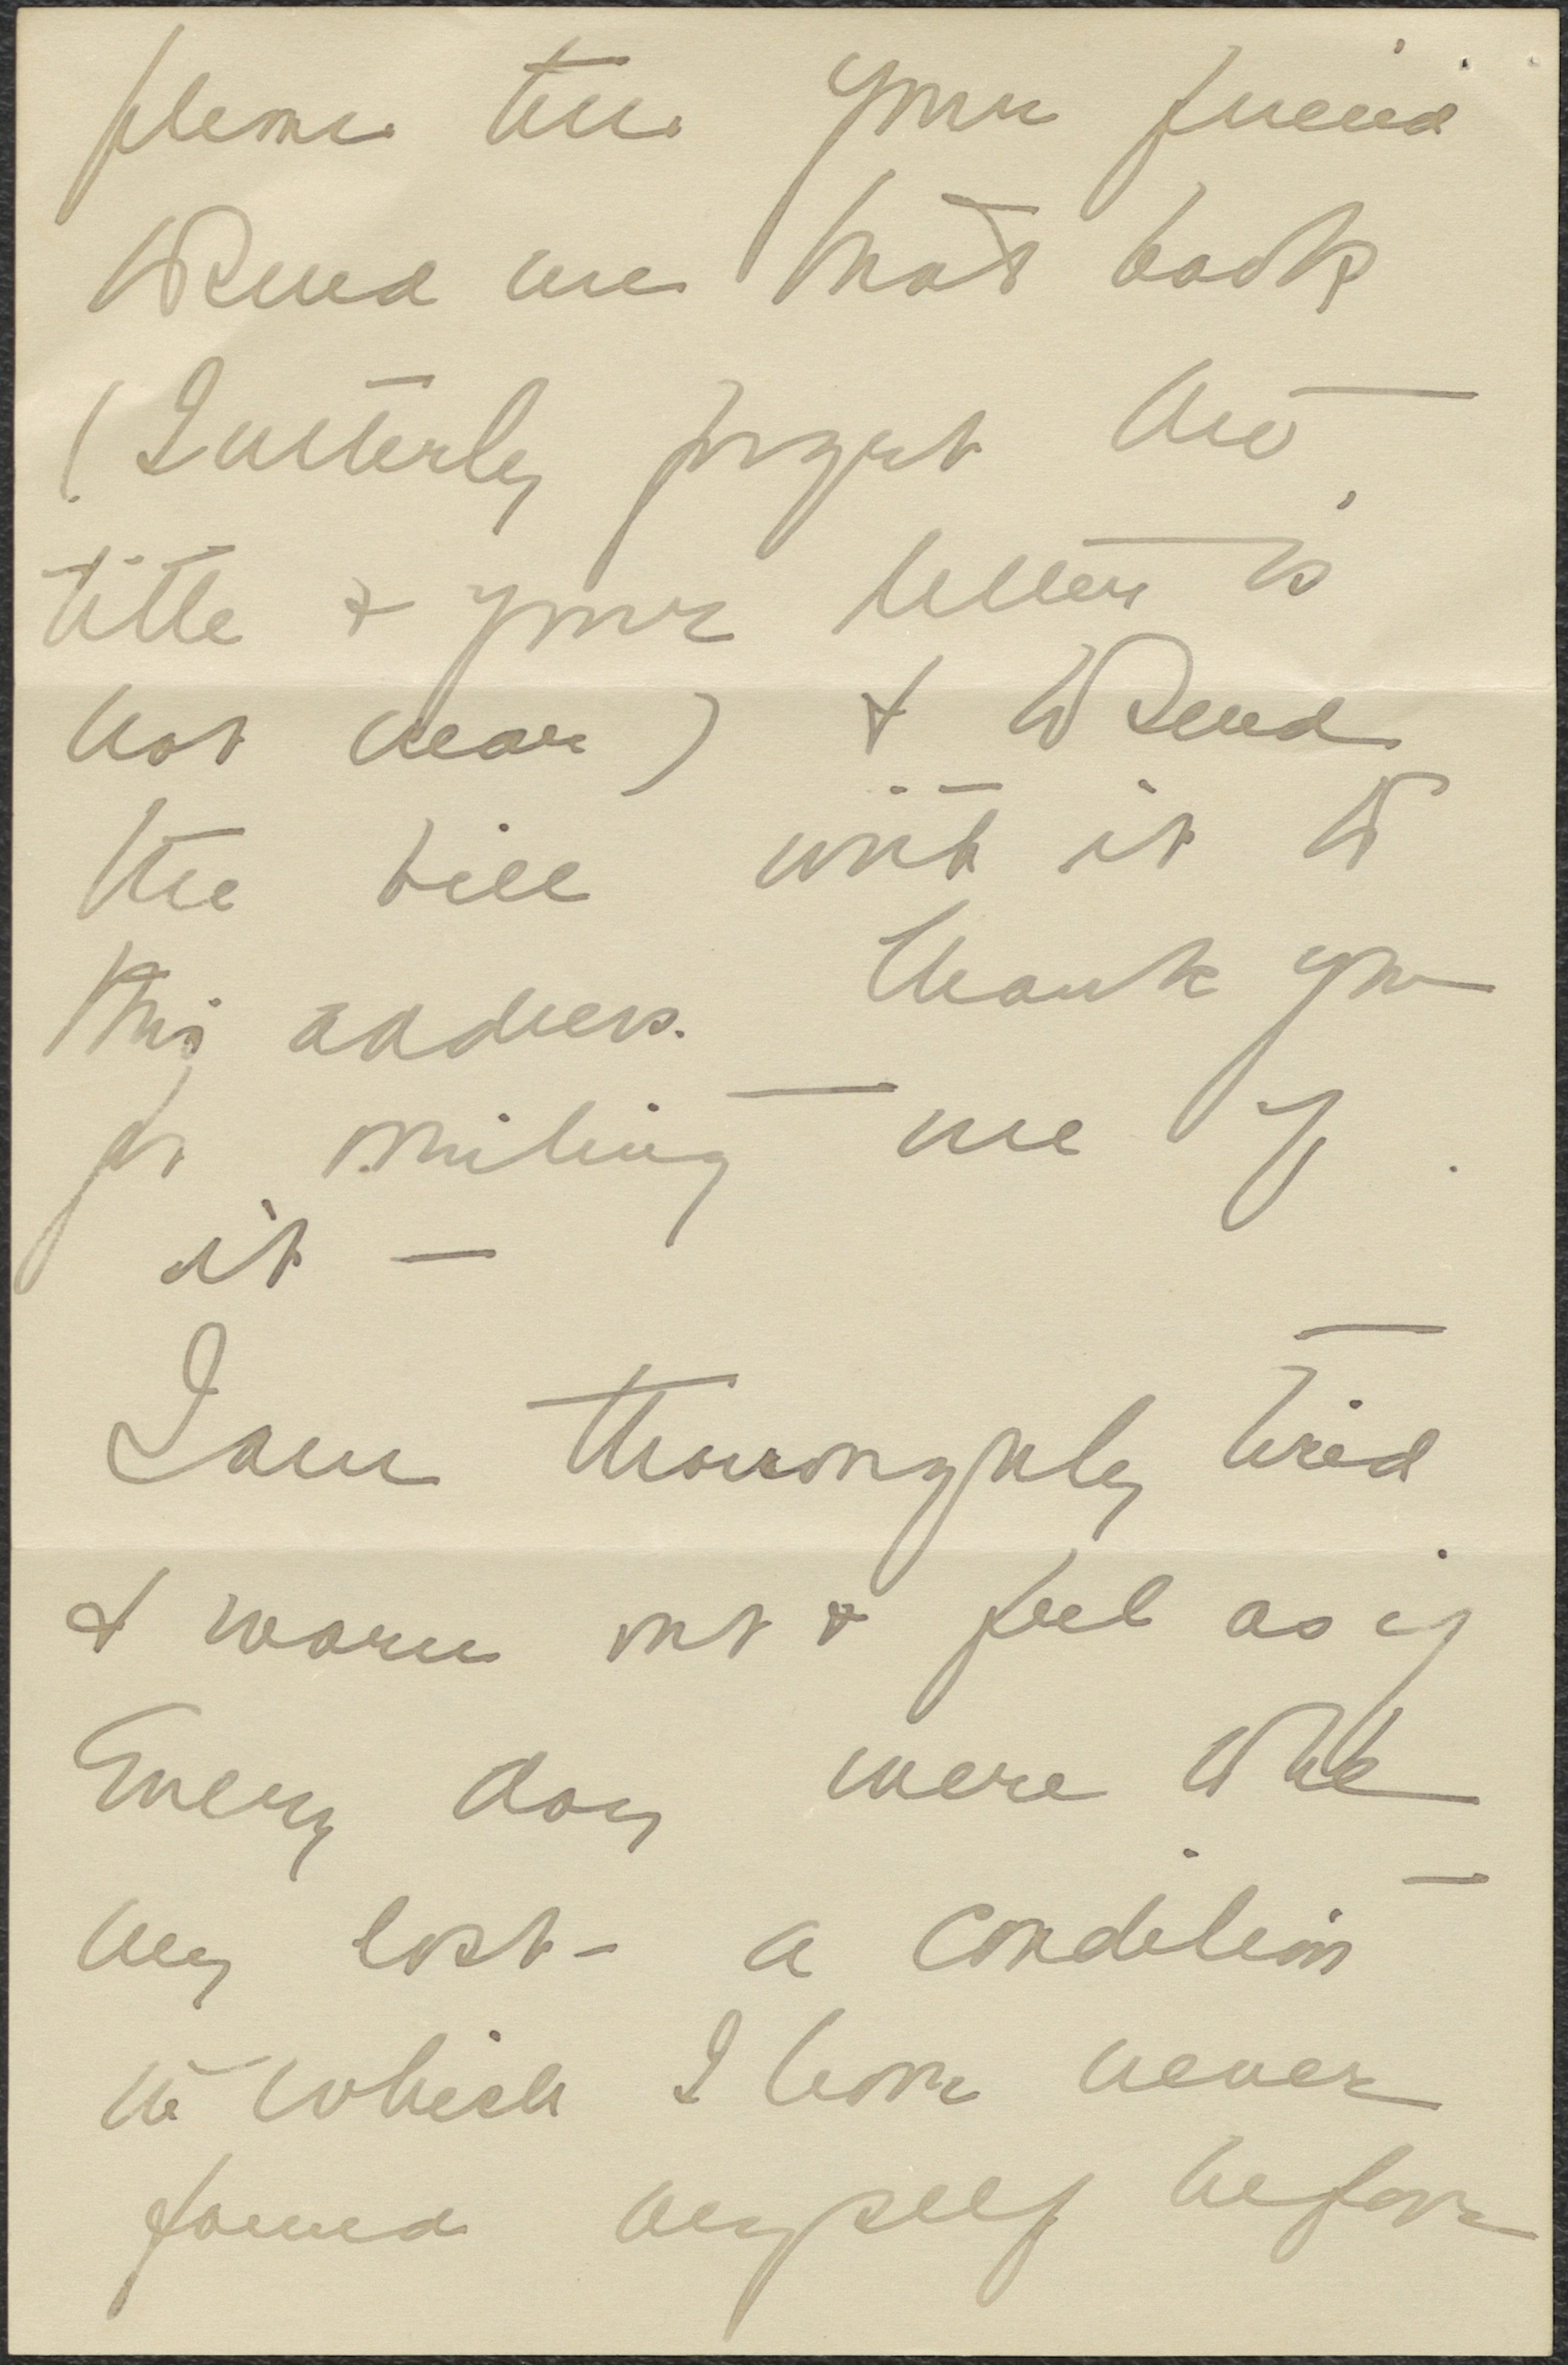 please tell your friend
to send me that book
(I utterly forget the
title & your letter is
not near) & to send
the bill with it to
this address. Thank you
for writing me of
it —
I am thoroughly tired
& worn out & feel as if
Every day were to be
my last - a condition
in which I have never
found myself before